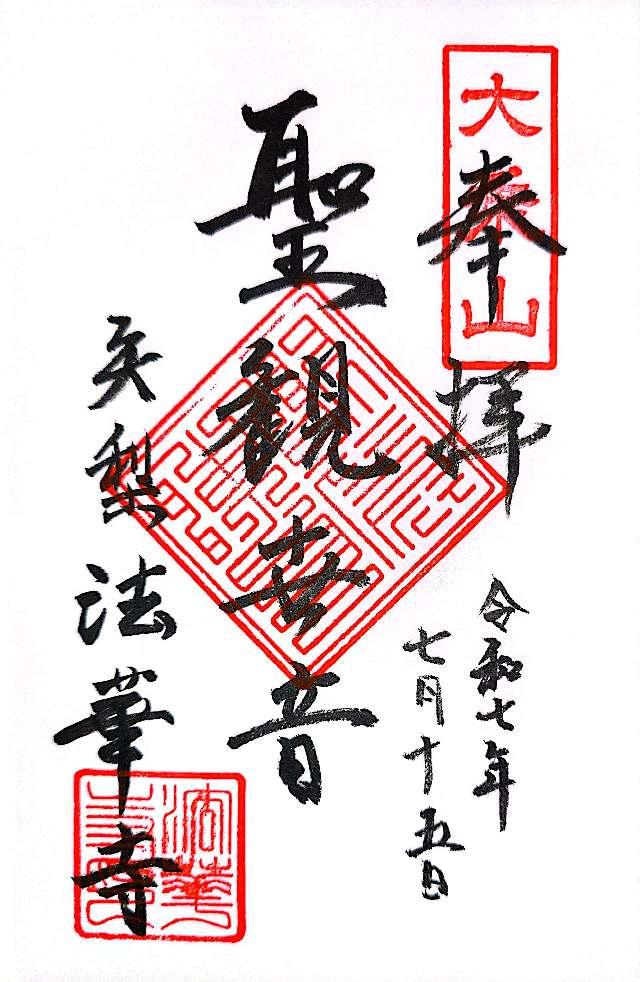 奉拝
大 山
聖観世音
令和七年
七月十五日
矢梨 法華寺